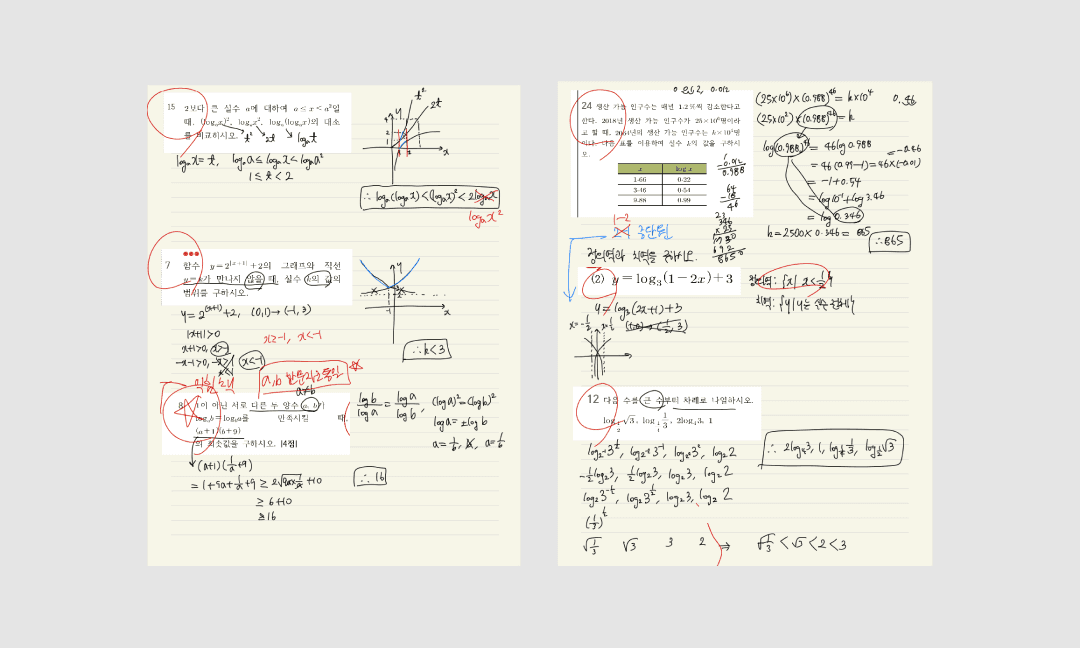 15 2보다 큰 실수 a에 대하여 a ≤ x < a²일
때, (logₐx)², logₐx², logₐ(logₐx)의 대소
를 비교하시오.
t² 2t logₐt
logₐx = t, logₐa ≤ logₐx < logₐa²
1 ≤ t < 2
t²
2t
y
x
∴ logₐ(logₐx) < (logₐx)² < 2logₐx
logₐx²
7 함수 y = 2^{|x+1|} + 2의 그래프와 직선
y = k가 만나지 않을 때, 실수 k의 값의
범위를 구하시오.
y = 2^{|x+1|} + 2, (0,1) → (-1, 3)
|x+1| > 0
x+1 > 0, x > -1
-x-1 > 0, -x > 1 x < -1
x ≥ -1, x < -1
y
x
-1
∴ k < 3
a, b 한 문자로 통일
8 1이 아닌 서로 다른 두 양수 a, b가
logₐb = log_b a를 만족시킬 때,
(a+1)(b+9)
의 최솟값을 구하시오. [4점]
a ≠ b
log b / log a = log a / log b, (log a)² = (log b)²
log a = ± log b
(a+1)(1/a + 9)
= 1 + 9a + 1/a + 9 ≥ 2√(9a × 1/a) + 10
≥ 6 + 10
≥ 16
∴ 16
24 생산 가능 인구수는 매년 1.2%씩 감소한다고
한다. 2018년 생산 가능 인구수가 25×10⁶명이라
고 할 때, 2064년의 생산 가능 인구수는 k×10⁴명
이다. 다음 표를 이용하여 실수 k의 값을 구하시
오.
x log x
1.66 0.22
3.46 0.54
9.88 0.99
1
-0.012
0.988
64
-18
46
346
× 25
1730
692
8650
(25×10⁶) × (0.988)⁴⁶ = k×10⁴
(25×10²) × (0.988)⁴⁶ = k
0.46
log(0.988)⁴⁶ = 46 log 0.988
= 46(0.99-1) = 46×(-0.01)
= -0.46
= -1 + 0.54
= log10⁻¹ + log 3.46
= log 0.346
k = 2500 × 0.346 = 865
∴ 865
1-2
중단원
정의역과 치역을 구하시오.
(2) y = log₃(1-2x) + 3
정의역: {x | x < 1/2}
y = log₃(2x+1) + 3
12 다음 수를 큰 수부터 차례로 나열하시오.
log_{1/2} √3, log_{1/4} 1/3, 2log₄3, 1
log₂⁻¹ 3^{1/2}, log₂⁻² 3⁻¹, log₂² 3², log₂2
-1/2 log₂3, 1/2 log₂3, log₂3, log₂2
log₂3^{-1/2}, log₂3^{1/2}, log₂3, log₂2
(1/3)^{1/2}
√(1/3) √3 3 2 ⇒ √(1/3) < √3 < 2 < 3
∴ 2log₄3, 1, log_{1/4} 1/3, log_{1/2} √3